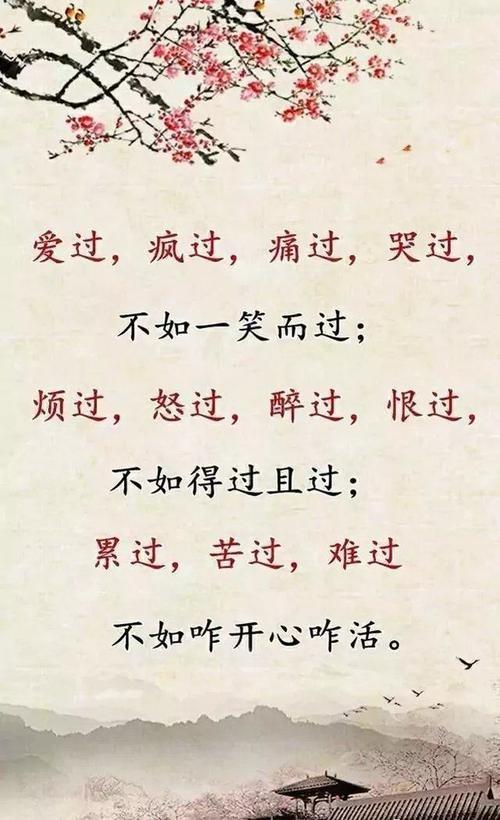 爱过，疯过，痛过，哭过，
不如一笑而过；
烦过，怒过，醉过，恨过，
不如得过且过；
累过，苦过，难过
不如咋开心咋活。